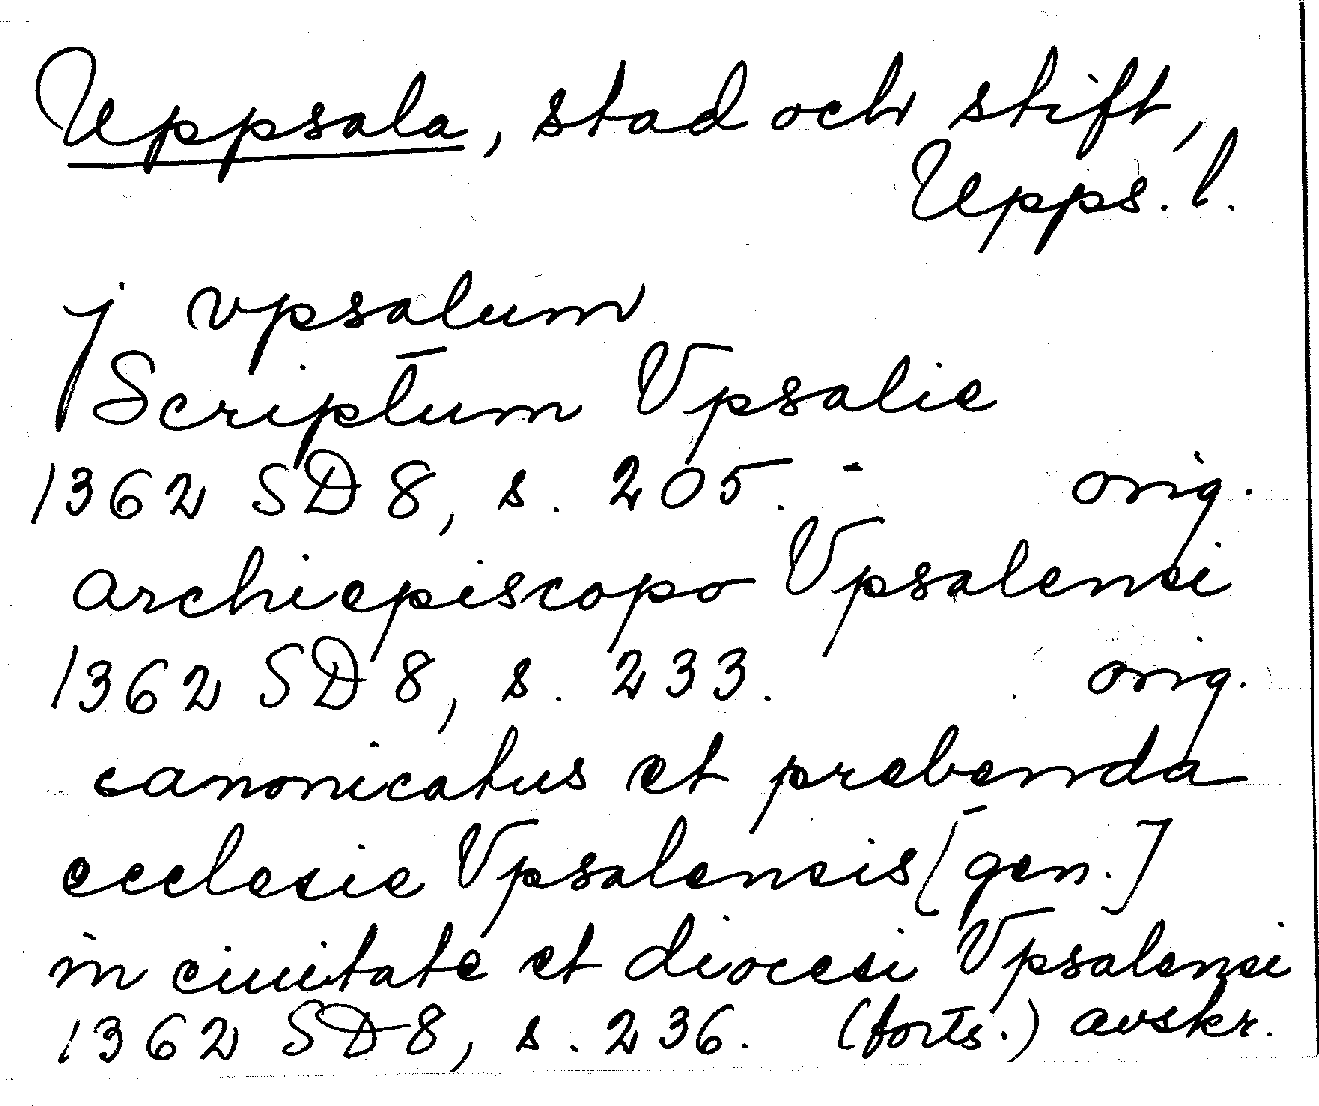 Uppsala, stad och stift,
Upps. l.
j vpsalum
Scriptum Vpsalie
1362 SD 8, s. 205. - orig.
archiepiscopo Vpsalensi
1362 SD 8, s. 233. orig.
canonicatus et prebenda
ecclesie Vpsalensis [gen.]
in ciuitate et diocesi Vpsalensi
1362 SD 8, s. 236. (forts.) avskr.